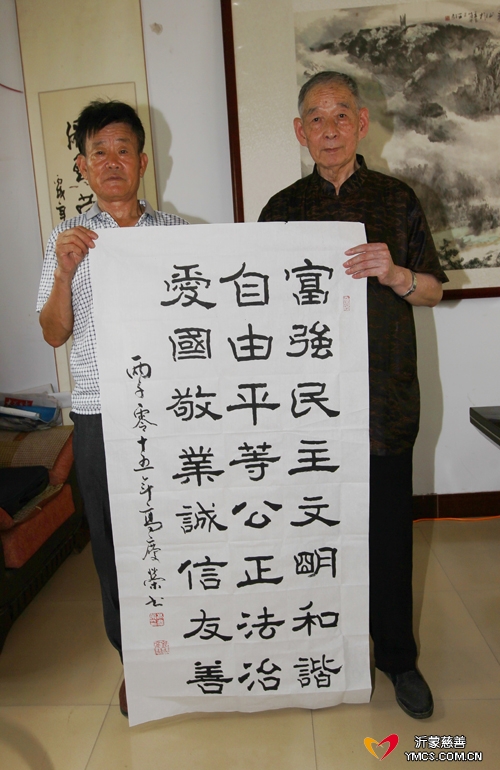 富強民主文明和諧
自由平等公正法治
愛國敬業誠信友善
兩千零十五年高慶榮书
沂蒙慈善
YMCS.COM.CN